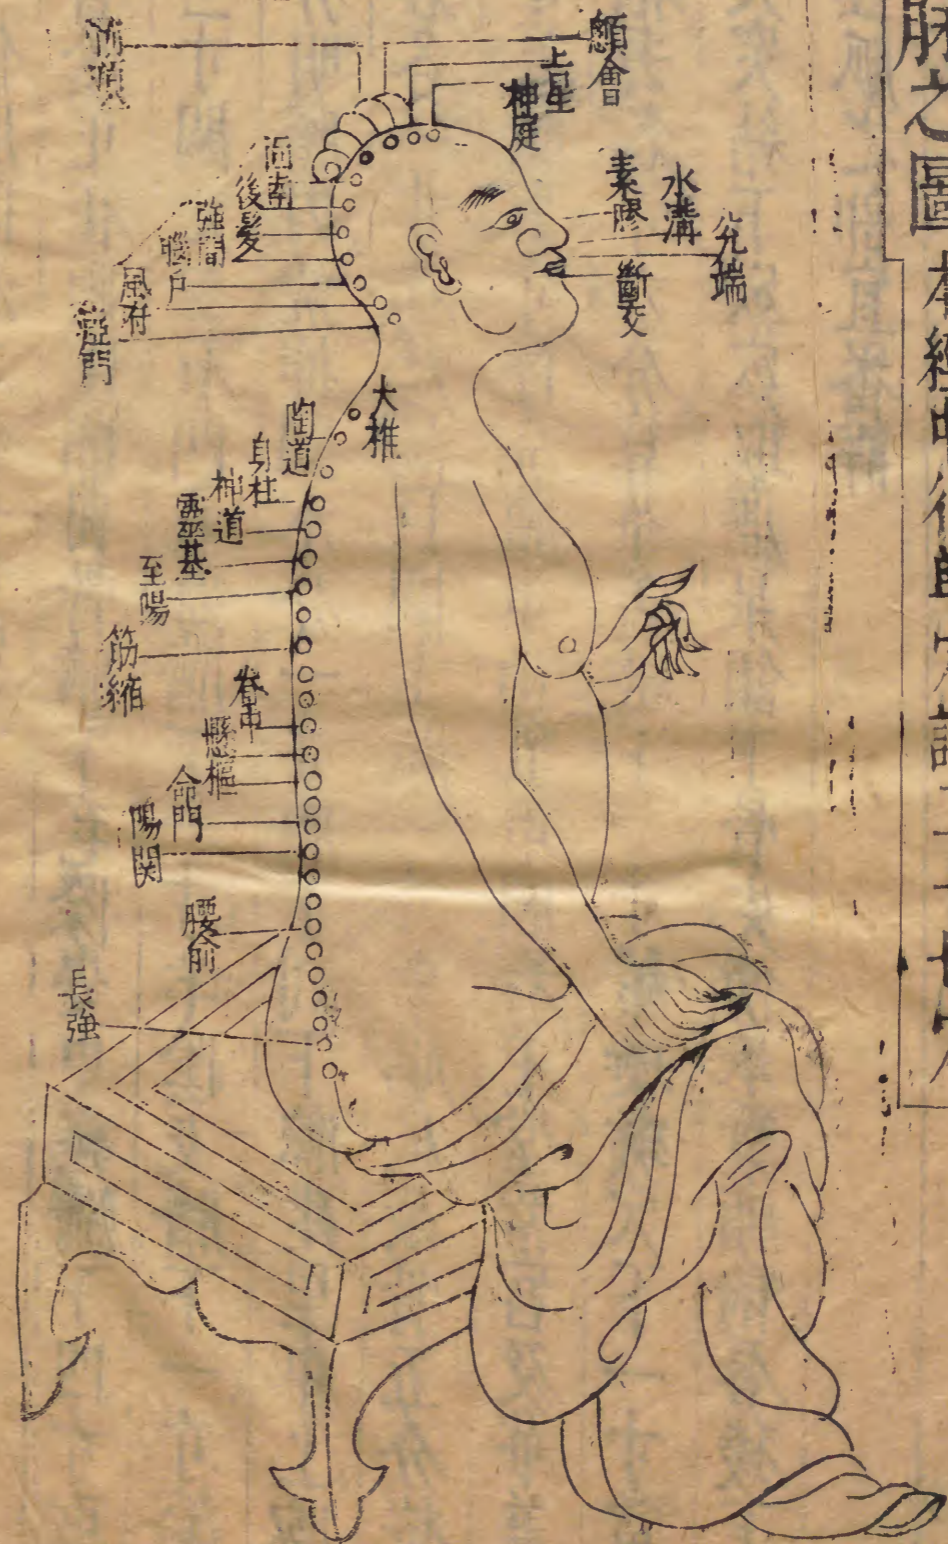 脉之圖
本經中行
二十七穴
顖會
上星
神庭
素髎
水溝
兌端
齗交
前頂
後髪
強間
腦戶
風府
瘂門
大椎
陶道
身柱
神道
靈基
至陽
筋縮
脊中
懸樞
命門
陽関
腰俞
長強